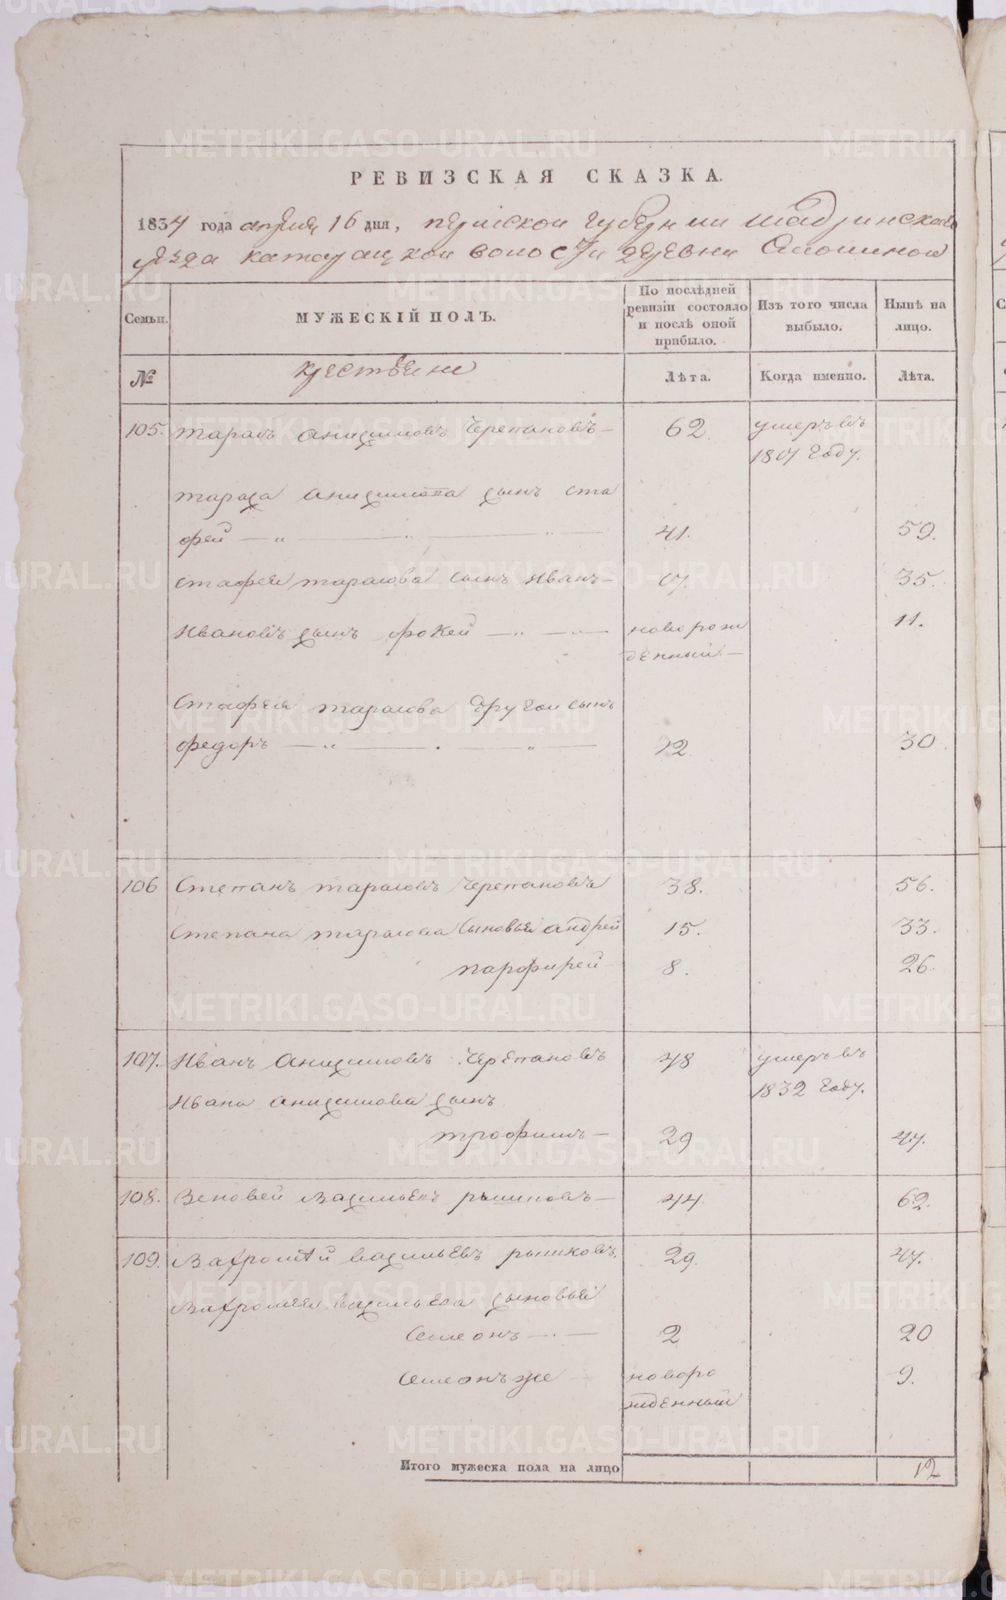 РЕВИЗСКАЯ СКАЗКА.
1834 года апреля 16 дня, пермской губернии шадринскаго
уезда катайской волости деревни
Семьи. МУЖЕСКІЙ ПОЛЪ. По послѣдней ревизіи состояло и послѣ оной прибыло. Изъ того числа выбыло. Нынѣ на лицо.
№ крестьяне Лѣта. Когда именно. Лѣта.
105. тарасъ анисимовъ Черепановъ 62. умеръ въ
1801 году.
тараса анисимова сынъ ста
фей 41. 59.
стафея тарасова сынъ Иванъ 17. 35.
Ивановъ сынъ фокей новорож 11.
денный
Стафея тарасова другой сынъ
федоръ 12. 30
106 Степанъ тарасовъ Черепановъ 38. 56.
Степана тарасова сыновья андрей 15. 33.
парфирей 8. 26.
107. Иванъ анисимовъ Черепановъ 48 умеръ въ
1832 году.
Ивана анисимова сынъ
трофимъ 29 47.
108. Зеновей васильевъ 44. 62.
109. Вахромей васильевъ 29. 47.
Вахромея васильева сыновья
Семенъ 2 20
Семенъ же новоро 9.
жденный
Итого мужеска пола на лицо 12
METRIKI.GASO-URAL.RU